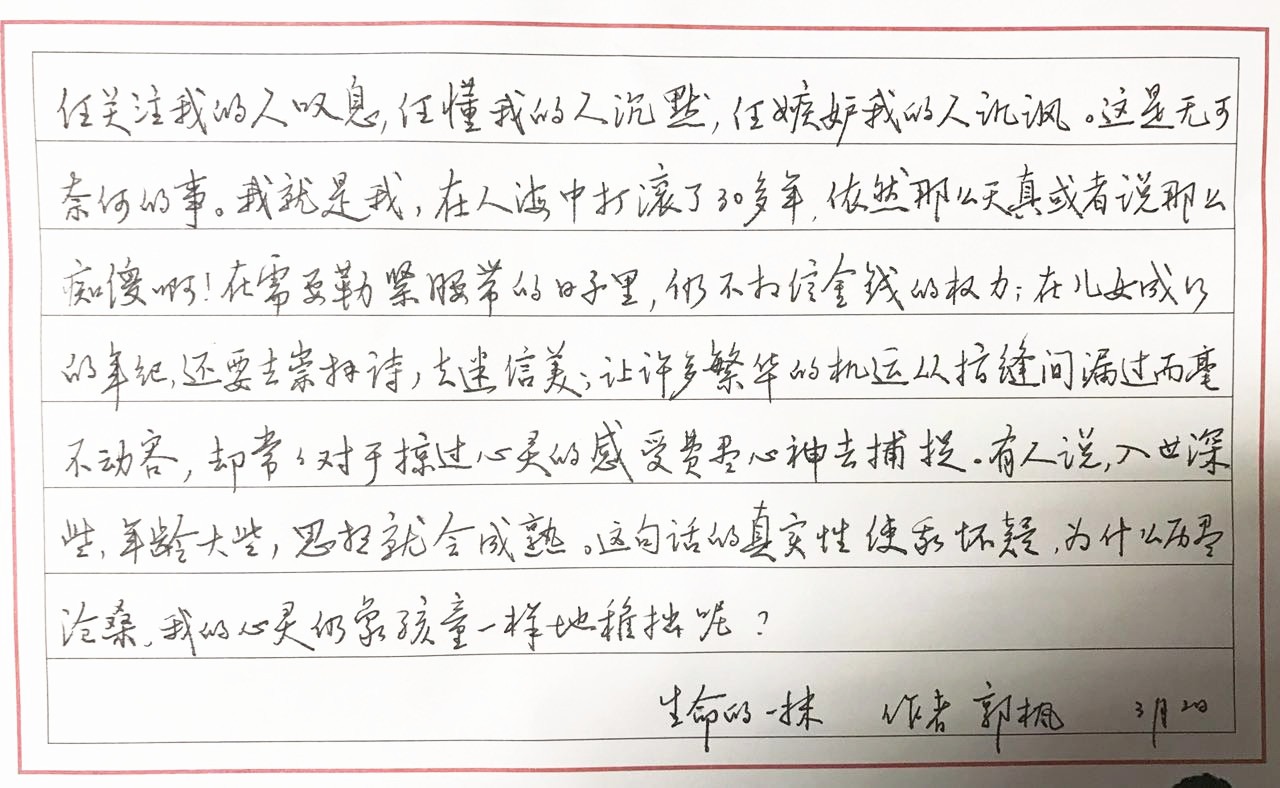 任关注我的人叹息,任懂我的人沉默,任嫉妒我的人讥讽。这是无可
奈何的事。我就是我,在人海中打滚了30多年,依然那么天真或者说那么
痴傻啊!在需要勒紧腰带的日子里,仍不相信金钱的权力;在儿女成行
的年纪,还要去崇拜诗,去迷信美;让许多繁华的机运从指缝间漏过而毫
不动容,却常々对于掠过心灵的感受费尽心神去捕捉。有人说,入世深
些,年龄大些,思想就会成熟。这句话的真实性使我怀疑,为什么历尽
沧桑,我的心灵仍象孩童一样地稚拙呢?
生命的一抹 作者 郭枫 3月2日